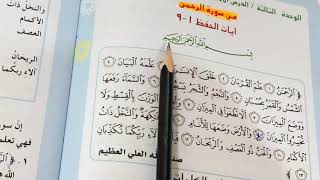 الوحدة الثالثة / الدرس
من سورة الرحمن
آيات الحفظ 1 - 9
بِسْمِ اللَّهِ الرَّحْمَنِ الرَّحِيمِ
﴿ الرَّحْمَنُ ١ عَلَّمَ الْقُرْآنَ ٢ خَلَقَ الْإِنسَانَ ٣ عَلَّمَهُ الْبَيَانَ ٤
الشَّمْسُ وَالْقَمَرُ بِحُسْبَانٍ ٥ وَالنَّجْمُ وَالشَّجَرُ يَسْجُدَانِ ٦ وَالسَّمَاءَ رَفَعَهَا
وَوَضَعَ الْمِيزَانَ ٧ أَلَّا تَطْغَوْا فِي الْمِيزَانِ ٨ وَأَقِيمُوا الْوَزْنَ بِالْقِسْطِ وَلَا
تُخْسِرُوا الْمِيزَانَ ٩ وَالْأَرْضَ وَضَعَهَا لِلْأَنَامِ ١٠ فِيهَا فَاكِهَةٌ وَالنَّخْلُ ذَاتُ
الْأَكْمَامِ ١١ وَالْحَبُّ ذُو الْعَصْفِ وَالرَّيْحَانُ ١٢ فَبِأَيِّ آلَاءِ رَبِّكُمَا تُكَذِّبَانِ
١٣ ﴾
صدق الله العلي العظيم
والنخل ذات
الأكمام
العصف
الريحان
آلاء ربكما